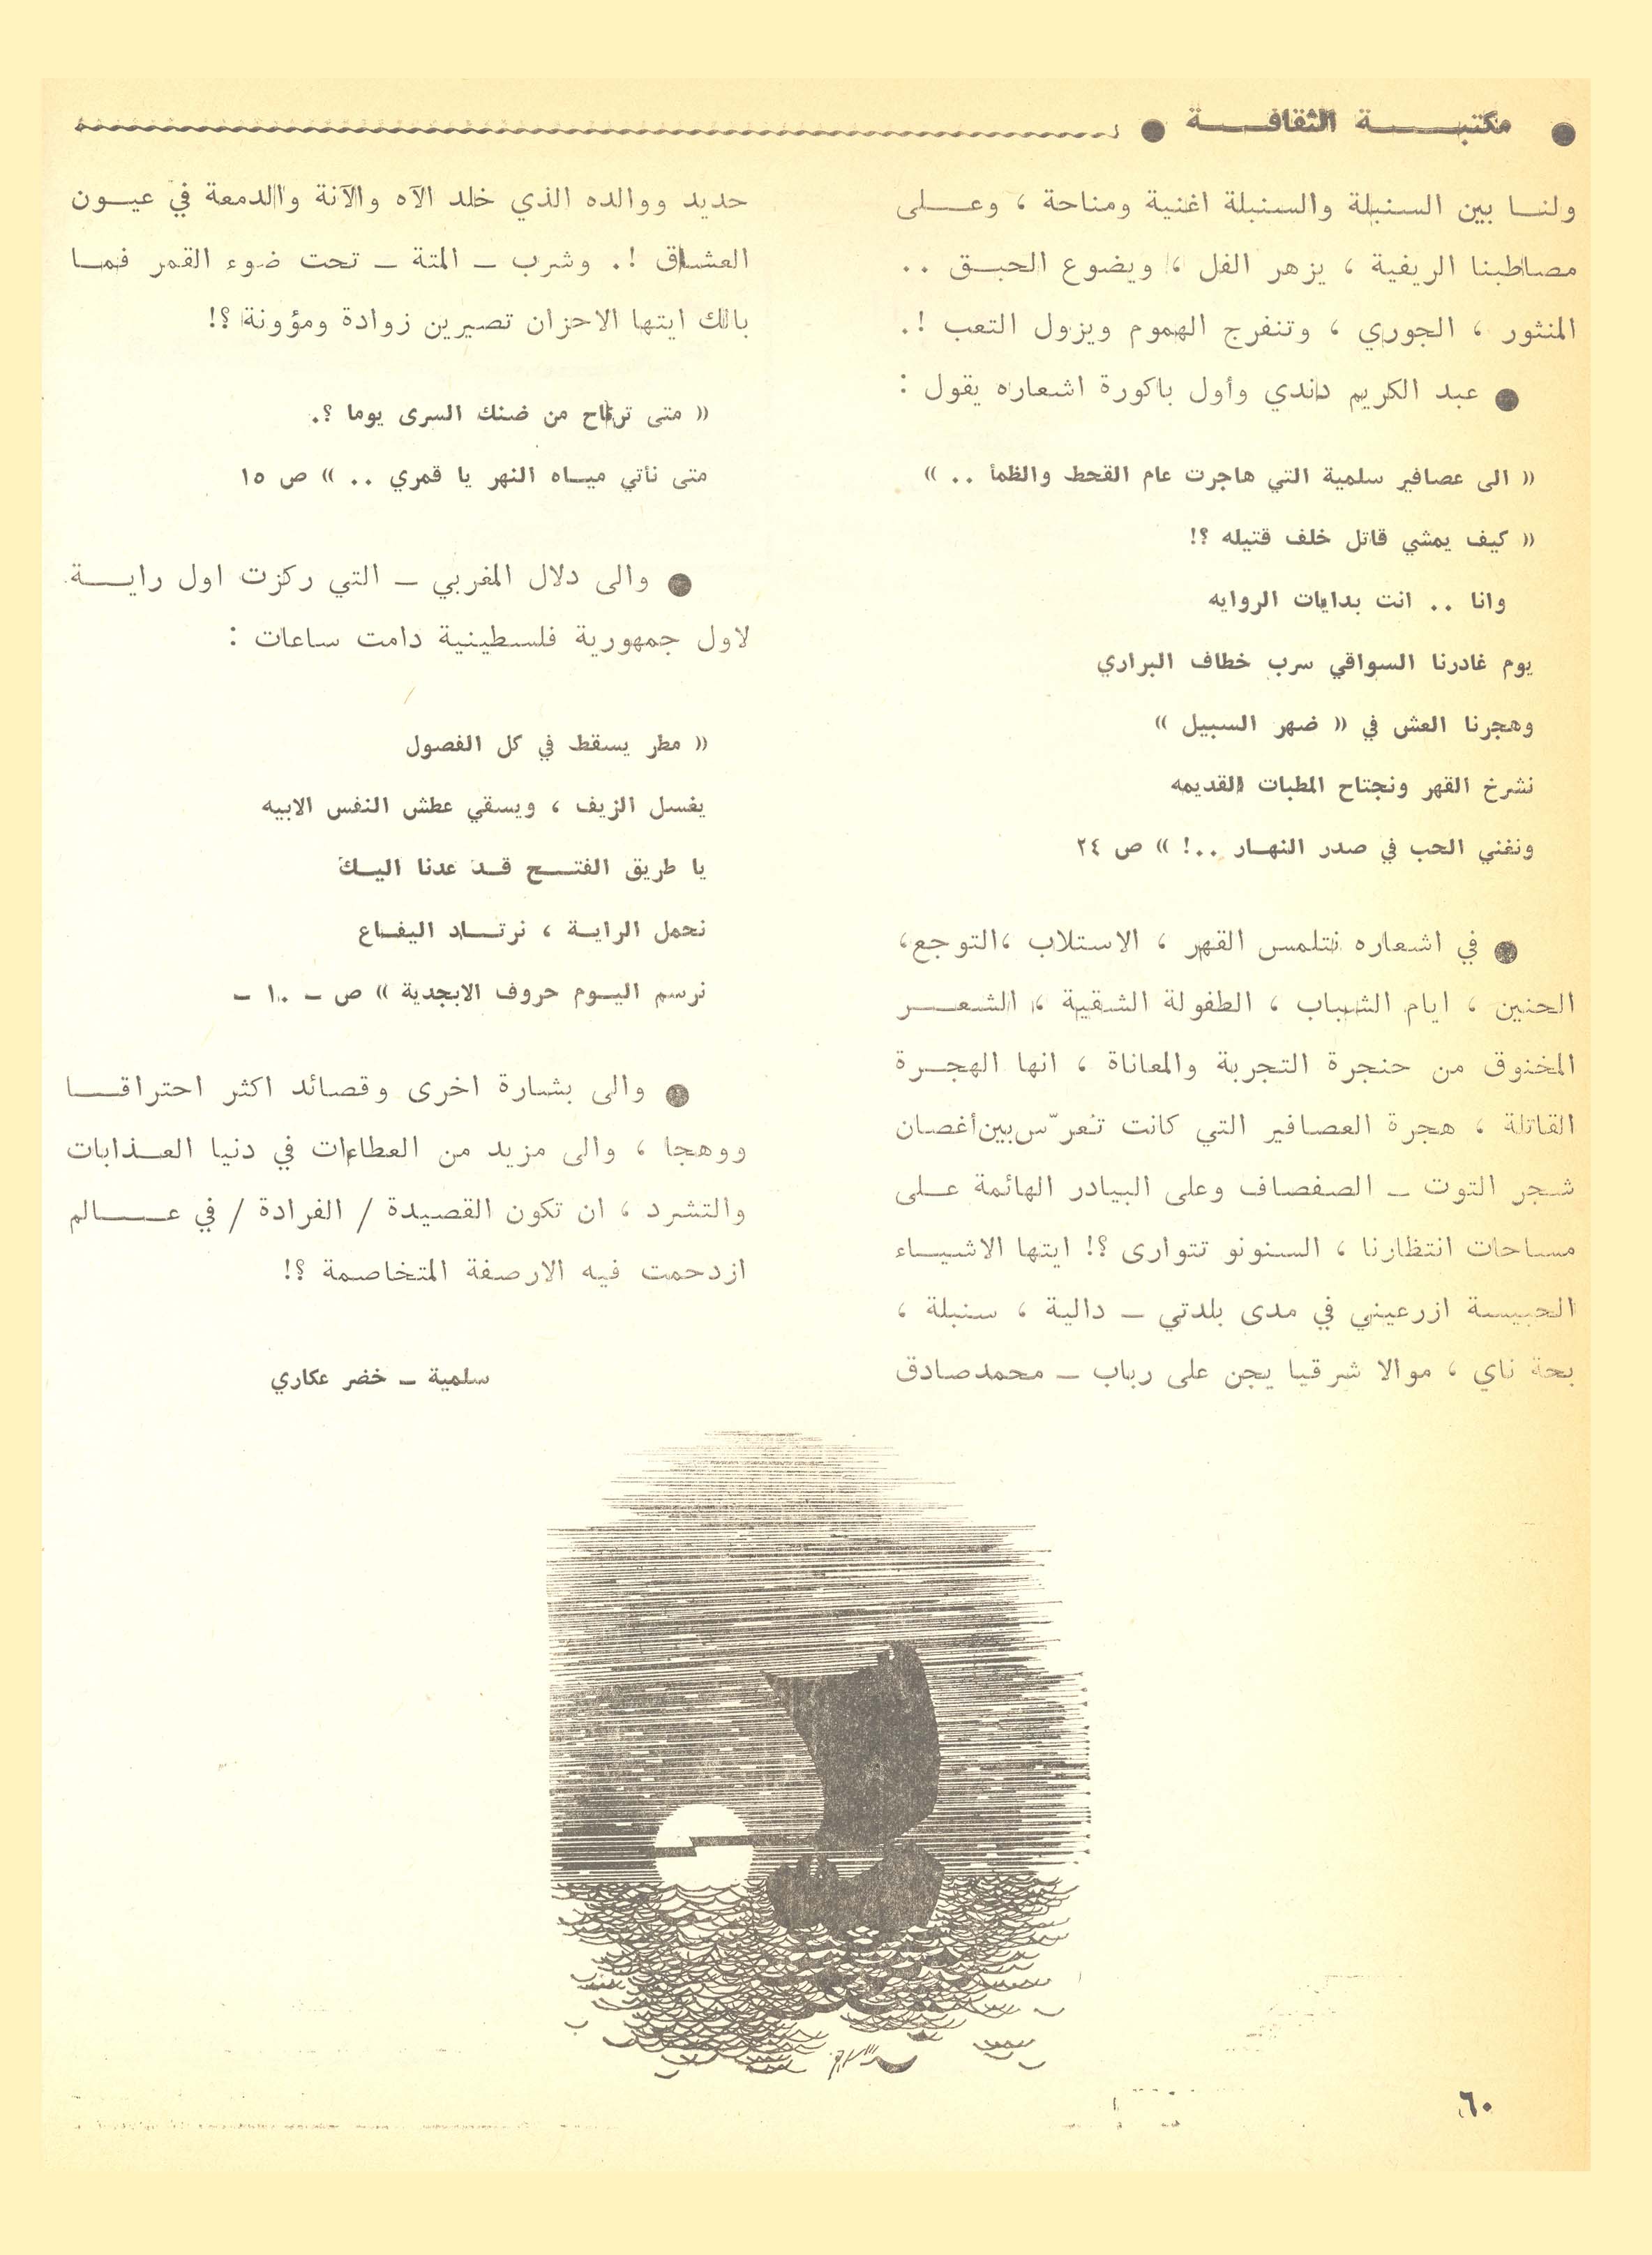 ● مكتبة الثقافة ●
ولنا بين السنبلة والسنبلة اغنية ومناحة ، وعلى
مصاطبنا الريفية ، يزهر الفل ، ويضوع الحبق ..
المنثور ، الجوري ، وتنفرج الهموم ويزول التعب !.
● عبد الكريم داندي وأول باكورة اشعاره يقول :
« الى عصافير سلمية التي هاجرت عام القحط والظمأ .. »
« كيف يمشي قاتل خلف قتيله ؟!
وانا .. انت بدايات الروايه
يوم غادرنا السواقي سرب خطاف البراري
وهجرنا العش في « ضهر السبيل »
نشرخ القهر ونجتاح المطبات القديمه
ونغني الحب في صدر النهار ..! » ص ٢٤
● في اشعاره نتلمس القهر ، الاستلاب ، التوجع،
الحنين ، ايام الشباب ، الطفولة الشقية ، الشعر
المخنوق من حنجرة التجربة والمعاناة ، انها الهجرة
القاتلة ، هجرة العصافير التي كانت تعرّس بين أغصان
شجر التوت – الصفصاف وعلى البيادر الهائمة على
مساحات انتظارنا ، السنونو تتوارى ؟! ايتها الاشياء
الحبيسة ازرعيني في مدى بلدتي – دالية ، سنبلة ،
بحة ناي ، موالا شرقيا يجن على رباب – محمد صادق
حديد ووالده الذي خلد الآه والآنة والدمعة في عيون
العشاق !. وشرب – المتة – تحت ضوء القمر فما
بالك ايتها الاحزان تصيرين زوادة ومؤونة ؟!
« متى ترتاح من ضنك السرى يوما ؟.
متى نأتي مياه النهر يا قمري .. » ص ١٥
● والى دلال المغربي – التي ركزت اول راية
لاول جمهورية فلسطينية دامت ساعات :
« مطر يسقط في كل الفصول
يغسل الزيف ، ويسقي عطش النفس الابيه
يا طريق الفتح قد عدنا اليك
نحمل الراية ، نرتاد اليفاع
نرسم اليوم حروف الابجدية » ص – ١٠ –
● والى بشارة اخرى وقصائد اكثر احتراقا
ووهجا ، والى مزيد من العطاءات في دنيا العذابات
والتشرد ، ان تكون القصيدة / الفرادة / في عالم
ازدحمت فيه الارصفة المتخاصمة ؟!
سلمية – خضر عكاري
٦٠